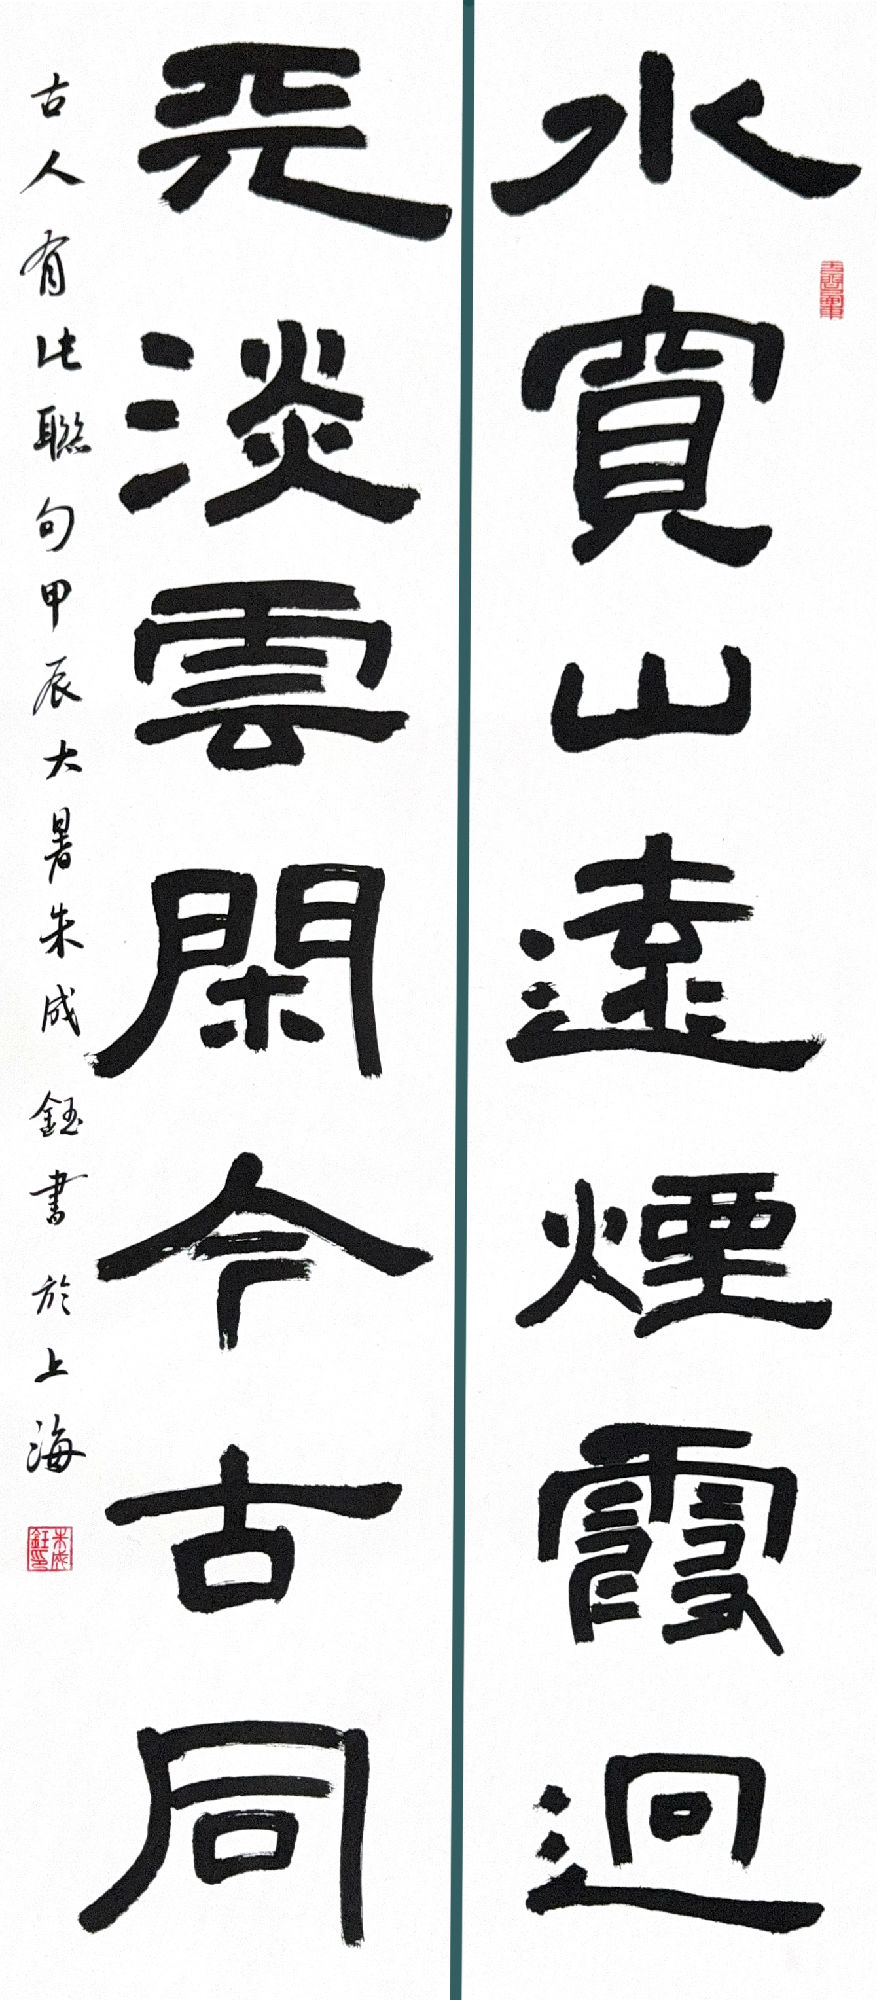 水寬山遠煙霞迥
天淡雲閑今古同
古人有此聯句甲辰大暑朱成鈺書於上海
朱成鈺印